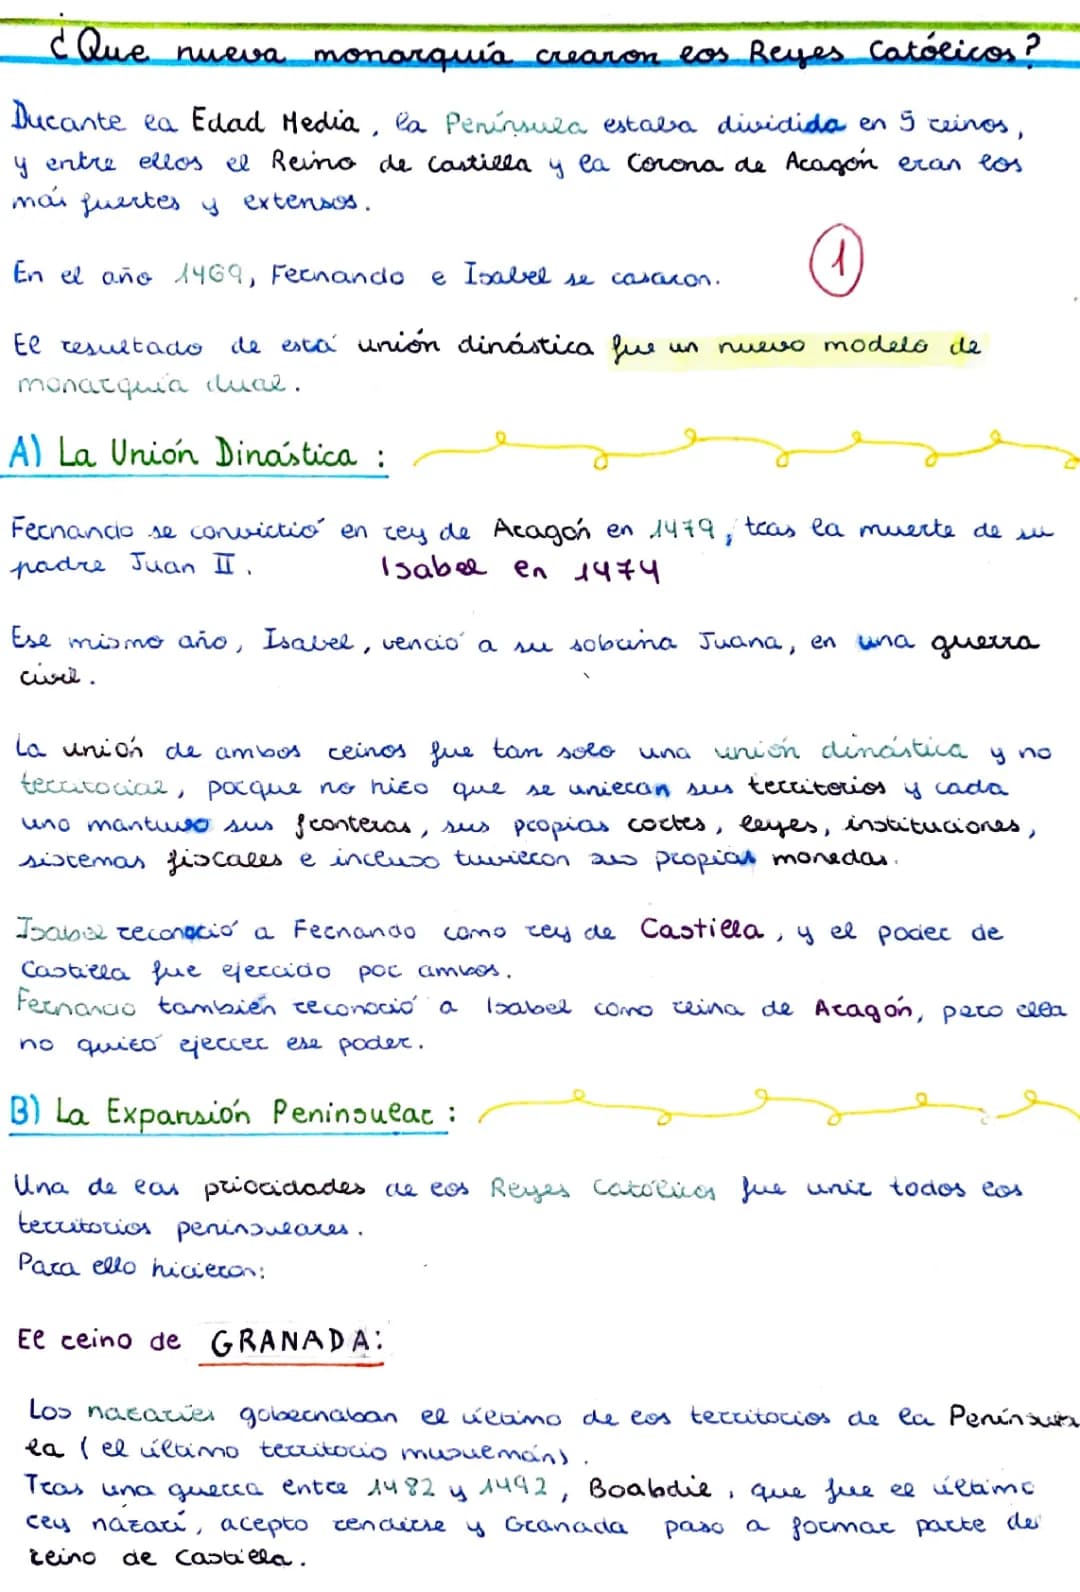 ¿Que nueva monarquía crearon los Reyes Católicos?
Durante la Edad Media, la Península estaba dividida en 5 reinos,
y entre ellos el Reino de Castilla y la Corona de Aragón eran los
más fuertes y extensos.
1
En el año 1469, Fernando e Isabel se casaron.
El resultado de está unión dinástica fue un nuevo modelo de
monarquía dual.
A) La Unión Dinástica :
Fernando se convirtió en rey de Aragón en 1479, tras la muerte de su
padre Juan II. Isabel en 1474
Ese mismo año, Isabel, venció a su sobrina Juana, en una guerra
civil.
La unión de ambos reinos fue tan solo una unión dinástica y no
territorial, porque no hizo que se unieran sus territorios y cada
uno mantuvo sus fronteras, sus propias cortes, leyes, instituciones,
sistemas fiscales e incluso tuvieron sus propias monedas.
Isabel reconoció a Fernando como rey de Castilla, y el poder de
Castilla fue ejercido por ambos.
Fernando también reconoció a Isabel como reina de Aragón, pero ella
no quiso ejercer ese poder.
B) La Expansión Peninsular :
Una de las prioridades de los Reyes Católicos fue unir todos los
territorios peninsulares.
Para ello hicieron:
El reino de GRANADA:
Los nazaries gobernaban el último de los territorios de la Península
la (el último territorio musulmán).
Tras una guerra entre 1482 y 1492, Boabdil, que fue el último
rey nazarí, acepto rendirse y Granada paso a formar parte del
reino de Castilla.